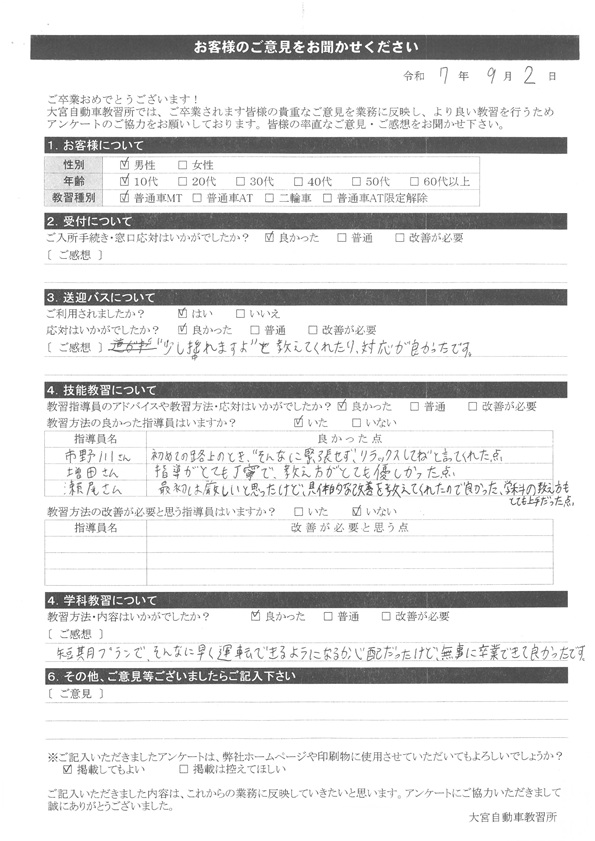 お客様のご意見をお聞かせください
令和 7 年 9 月 2 日
ご卒業おめでとうございます！
大宮自動車教習所では、ご卒業されます皆様の貴重なご意見を業務に反映し、より良い教習を行うため
アンケートのご協力をお願いしております。皆様の率直なご意見・ご感想をお聞かせ下さい。
1. お客様について
性別 ☑ 男性 □ 女性
年齢 ☑ 10代 □ 20代 □ 30代 □ 40代 □ 50代 □ 60代以上
教習種別 ☑ 普通車MT □ 普通車AT □ 二輪車 □ 普通車AT限定解除
2. 受付について
ご入所手続き・窓口応対はいかがでしたか？ ☑ 良かった □ 普通 □ 改善が必要
[ ご感想 ]
3. 送迎バスについて
ご利用されましたか？ ☑ はい □ いいえ
応対はいかがでしたか？ ☑ 良かった □ 普通 □ 改善が必要
[ ご感想 ] "少し揺れますよ"と教えてくれたり、対応が良かったです。
4. 技能教習について
教習指導員のアドバイスや教習方法・応対はいかがでしたか？ ☑ 良かった □ 普通 □ 改善が必要
教習方法の良かった指導員はいますか？ ☑ いた □ いない
指導員名 良かった点
市野川さん 初めての路上のとき、"そんなに緊張せず、リラックスしてね"と言ってくれた点
増田さん 指導がとても丁寧で、教え方がとても優しかった点
瀬尾さん 最初は厳しいと思ったけど、具体的な改善を教えてくれたので良かった、学科の教え方も
とても上手だった点。
教習方法の改善が必要と思う指導員はいますか？ □ いた ☑ いない
指導員名 改善が必要と思う点
4. 学科教習について
教習方法・内容はいかがでしたか？ ☑ 良かった □ 普通 □ 改善が必要
[ ご感想 ]
短期プランで、そんなに早く運転できるようになるか心配だったけど、無事に卒業できて良かったです。
6. その他、ご意見等ございましたらご記入下さい
[ ご意見 ]
※ご記入いただきましたアンケートは、弊社ホームページや印刷物に使用させていただいてもよろしいでしょうか？
☑ 掲載してもよい □ 掲載は控えてほしい
ご記入いただきました内容は、これからの業務に反映していきたいと思います。アンケートにご協力いただきまして
誠にありがとうございました。
大宮自動車教習所